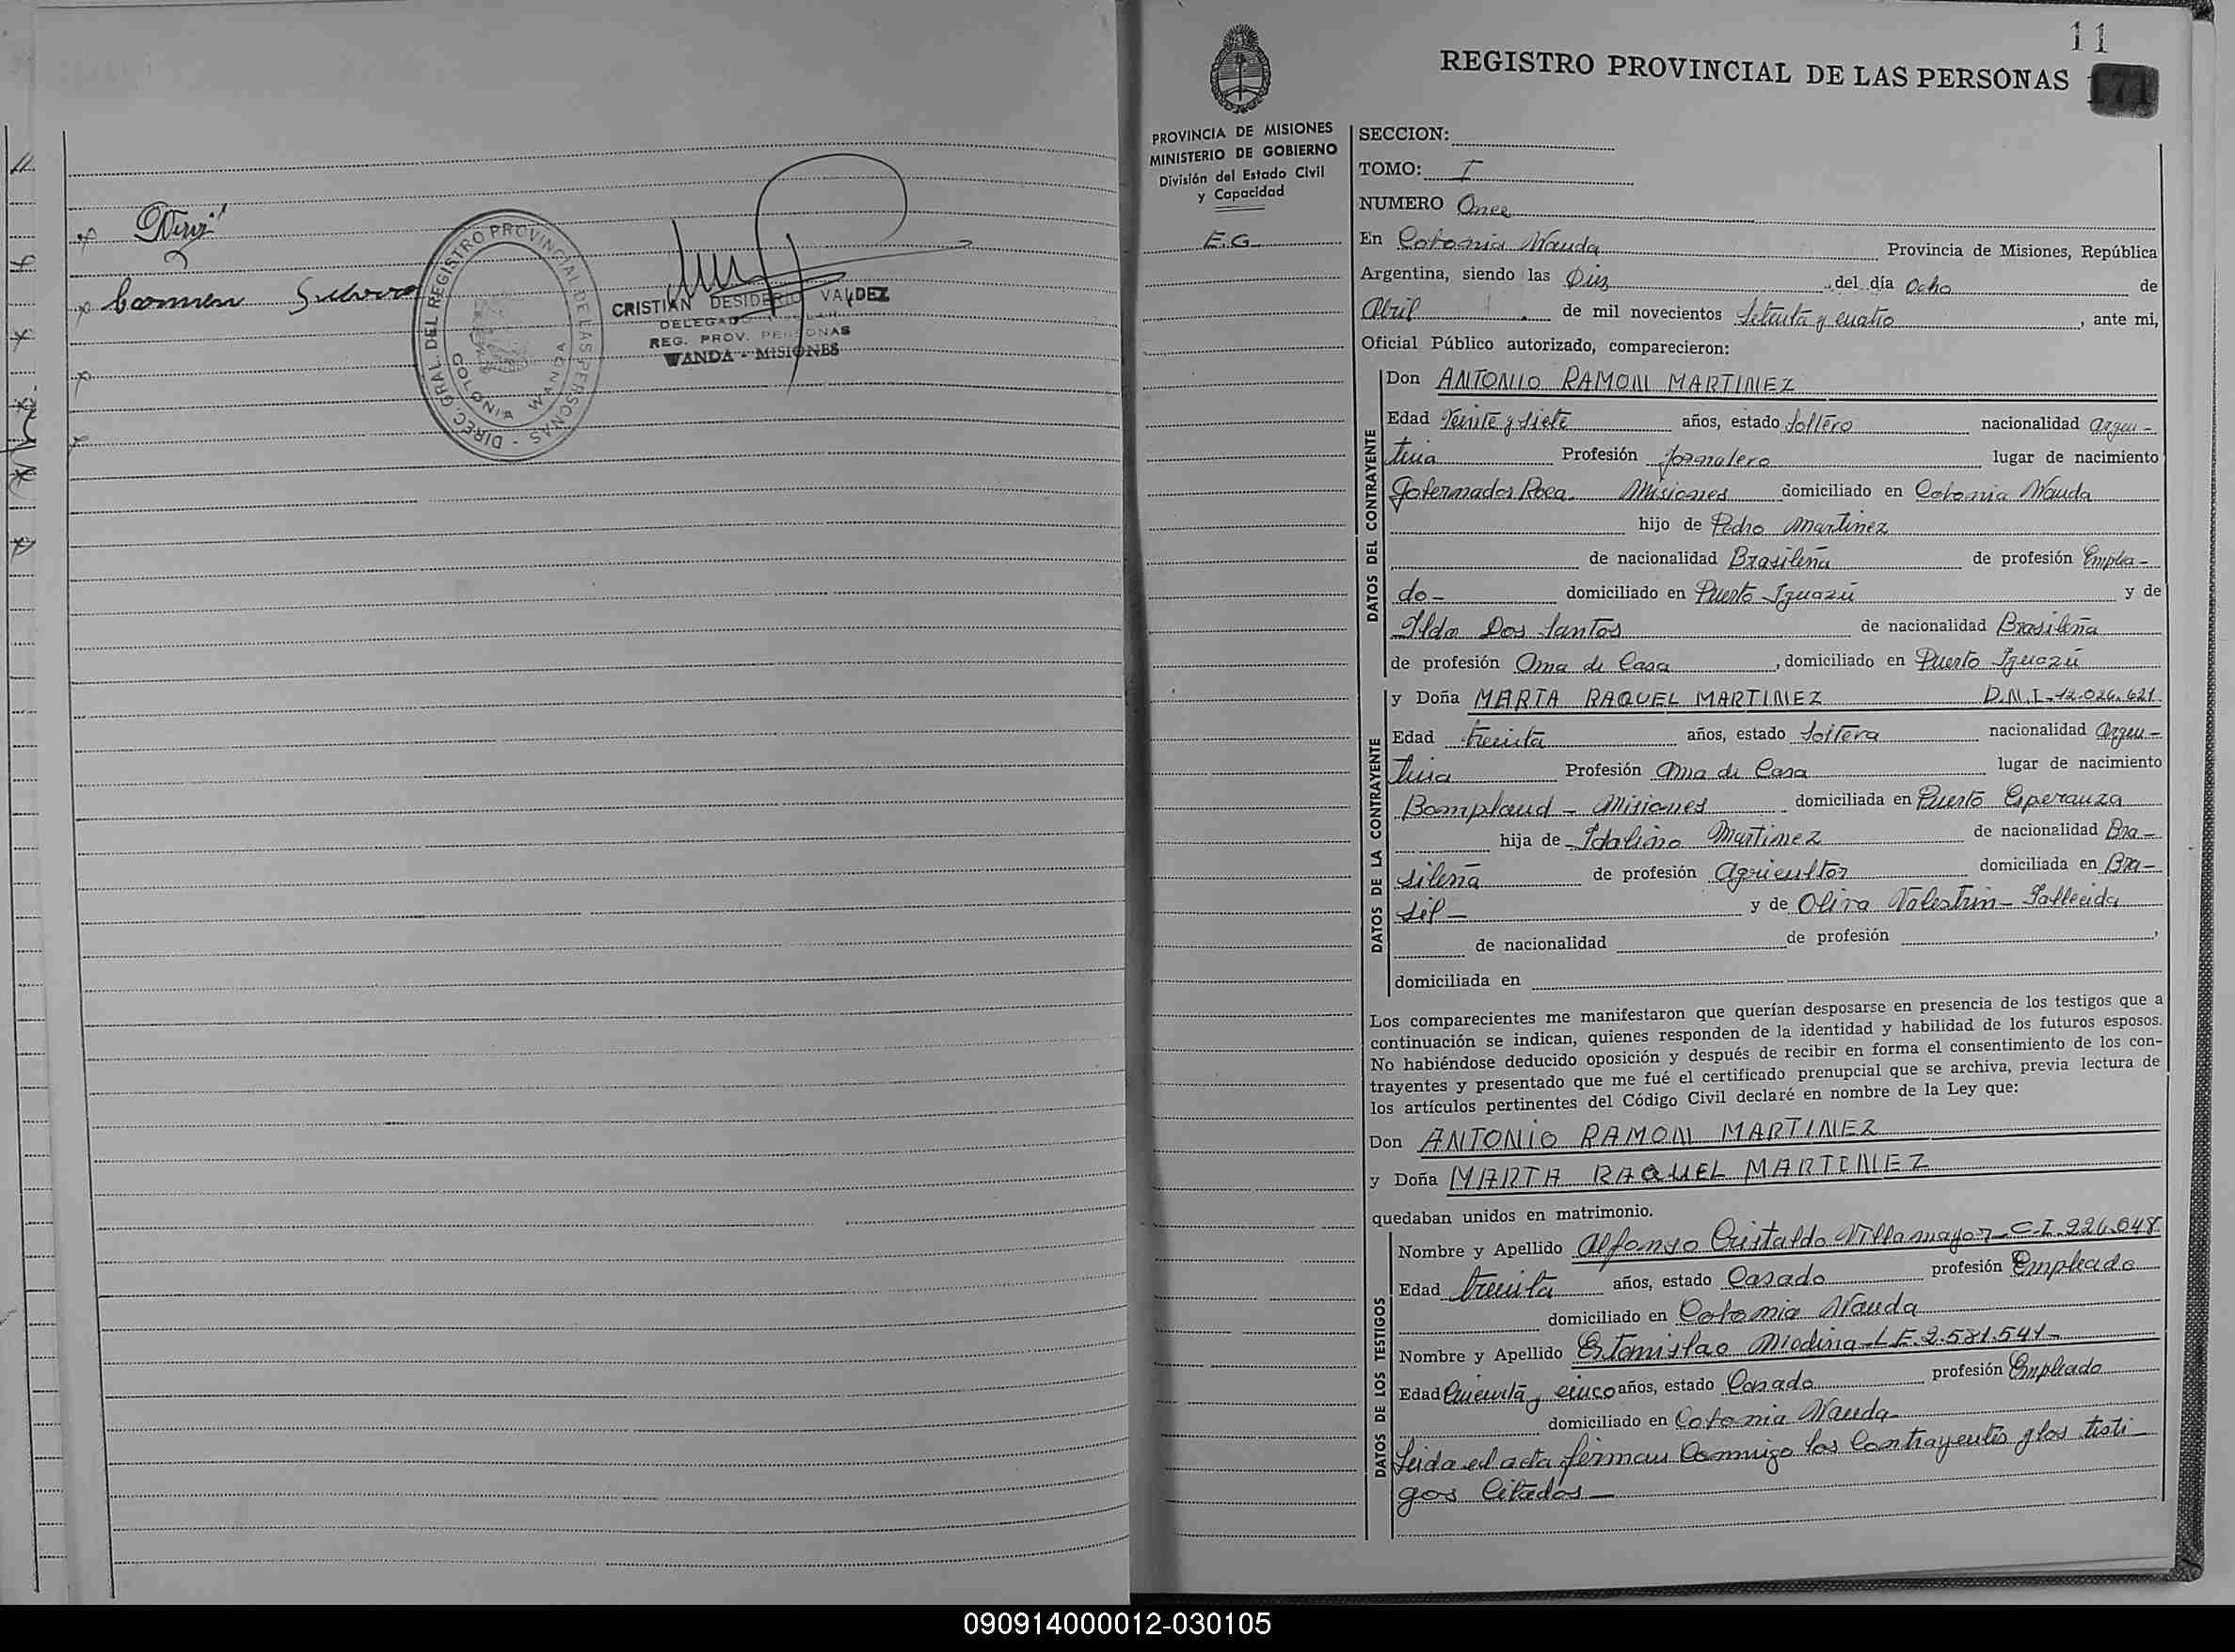 Carmen
DIREC. GRAL. DEL REGISTRO PROVINCIAL DE LAS PERSONAS -
COLONIA WANDA
CRISTIAN DESIDERIO VALDEZ
DELEGADO TITULAR
REG. PROV. PERSONAS
WANDA - MISIONES
11
REGISTRO PROVINCIAL DE LAS PERSONAS
171
PROVINCIA DE MISIONES
MINISTERIO DE GOBIERNO
División del Estado Civil
y Capacidad
E.G.
SECCION:
TOMO: I
NUMERO Once
En Colonia Wanda Provincia de Misiones, República
Argentina, siendo las Diez del día Ocho de
Abril de mil novecientos Setenta y cuatro, ante mi,
Oficial Público autorizado, comparecieron:
DATOS DEL CONTRAYENTE
Don ANTONIO RAMON MARTINEZ
Edad Veinte y Siete años, estado Soltero nacionalidad Argen-
tina Profesión Jornalero lugar de nacimiento
Gobernador Roca. Misiones domiciliado en Colonia Wanda
hijo de Pedro Martinez
de nacionalidad Brasileña de profesión Emplea-
do- domiciliado en Puerto Iguazú y de
Ilda Dos Santos de nacionalidad Brasileña
de profesión Ama de Casa, domiciliado en Puerto Iguazú
DATOS DE LA CONTRAYENTE
y Doña MARTA RAQUEL MARTINEZ D.N.I.-12.026.621
Edad treinta años, estado Soltera nacionalidad Argen-
tina Profesión Ama de Casa lugar de nacimiento
Bompland - Misiones domiciliada en Puerto Esperanza
hija de Idalino Martinez de nacionalidad Bra-
sileña de profesión Agricultor domiciliada en Bra-
sil- y de Oliva Valestrin - Fallecida
de nacionalidad de profesión ,
domiciliada en
Los comparecientes me manifestaron que querían desposarse en presencia de los testigos que a
continuación se indican, quienes responden de la identidad y habilidad de los futuros esposos.
No habiéndose deducido oposición y después de recibir en forma el consentimiento de los con-
trayentes y presentado que me fué el certificado prenupcial que se archiva, previa lectura de
los artículos pertinentes del Código Civil declaré en nombre de la Ley que:
Don ANTONIO RAMON MARTINEZ
y Doña MARTA RAQUEL MARTINEZ
quedaban unidos en matrimonio.
DATOS DE LOS TESTIGOS
Nombre y Apellido Alfonso Cristaldo Villamayor - C.I. 226.048
Edad treinta años, estado Casado profesión Empleado
domiciliado en Colonia Wanda
Nombre y Apellido Estanislao Medina - L.E. 2.581.541-
Edad Cincuenta y cinco años, estado Casado profesión Empleado
domiciliado en Colonia Wanda-
Leida el acta firman Conmigo los Contrayentes y los testi-
gos Citados-
090914000012-030105